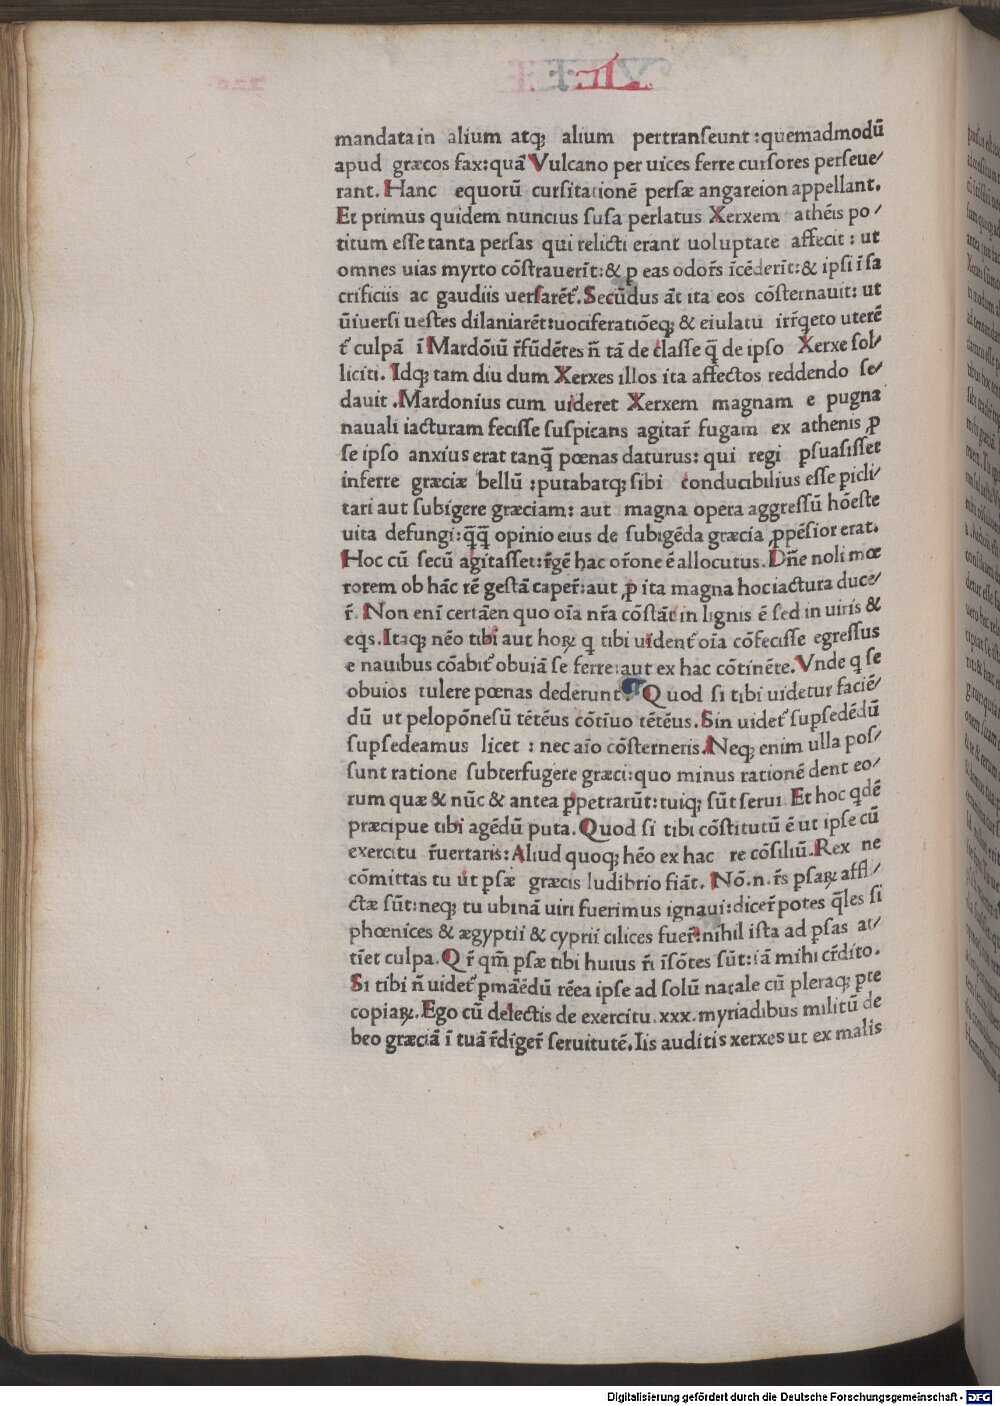 mandata in alium atq; alium pertranseunt : quemadmodū
apud græcos fax: quā Vulcano per uices ferre cursores perseue/
rant. Hanc equorū cursitationē persæ angareion appellant.
Et primus quidem nuncius susa perlatus Xerxem athēis po/
titum esse tanta persas qui relicti erant uoluptate affecit : ut
omnes uias myrto cōstrauerīt: & ꝑ eas odor̄s īcēderīt: & ipsi ī sa
crificiis ac gaudiis uersarēt᷑. Secūdus āt ita eos cōsternauit: ut
ūiuersi uestes dilaniarēt: uociferatiōeq; & eiulatu irr̄qeto uterē
t᷑ culpā ī Mardōiū r̄fūdētes n̄ tā de classe q̄ de ipso Xerxe sol/
liciti. Idq; tam diu dum Xerxes illos ita affectos reddendo se/
dauit. Mardonius cum uideret Xerxem magnam e pugna
nauali iacturam fecisse suspicans agitar̄ fugam ex athenis ꝓ
se ipso anxius erat tanq̄ pœnas daturus: qui regi ꝑsuasisset
inferre græciæ bellū : putabatq; sibi conducibilius esse picli/
tari aut subigere græciam: aut magna opera aggressū hōeste
uita defungi: q̄q̄ opinio eius de subigēda græcia ꝓpēsior erat.
Hoc cū secū agitasset: r̄gē hac or̄one ē allocutus. Dn̄e noli mœ
rorem ob hāc rē gestā caper̄: aut ꝓ ita magna hoc iactura duce/
r̄. Non enī certāen quo oīa nr̄a cōstāt in lignis ē sed in uiris &
eqs. Itaq; nēo tibi aut hoꝝ q tibi uident᷑ oīa cōfecisse egressus
e nauibus cōabit᷑ obuiā se ferre: aut ex hac cōtinēte. Vnde q se
obuios tulere pœnas dederunt. Quod si tibi uidetur faciē/
dū ut pelopōnesū tētēus cōtīuo tētēus. Sin uidet᷑ supsedēdū
supsedeamus licet : nec aīo cōsterneris. Neq; enim ulla pos/
sunt ratione subterfugere græci: quo minus rationē dent eo/
rum quæ & nūc & antea ꝑpetrarūt: tuiq; sūt serui. Et hoc qdē
præcipue tibi agēdū puta. Quod si tibi cōstitutū ē ut ipse cū
exercitu r̄uertaris: Aliud quoq; hēo ex hac re cōsiliū. Rex ne
cōmittas tu ut ꝑsæ græcis ludibrio fiāt. Nō.n.r̄s ꝑsaꝝ affl/
ctæ sūt: neq; tu ubinā uiri fuerimus ignaui: dicer̄ potes q̄les si
phœnices & ægyptii & cyprii cilices fuer̄: nihil ista ad ꝑsas at/
tīet culpa. Q r̄ qm̄ ꝑsæ tibi huius r̄i īsōtes sūt: iā mihi cr̄dito.
Si tibi n̄ uidet᷑ ꝑmāēdū rēea ipse ad solū natale cū pleraq; ꝑte
copiaꝝ. Ego cū delectis de exercitu .xxx. myriadibus militū de
beo græciā ī tuā r̄dīger̄ seruitutē. Iis auditis xerxes ut ex malis
Digitalisierung gefördert durch die Deutsche Forschungsgemeinschaft - DFG